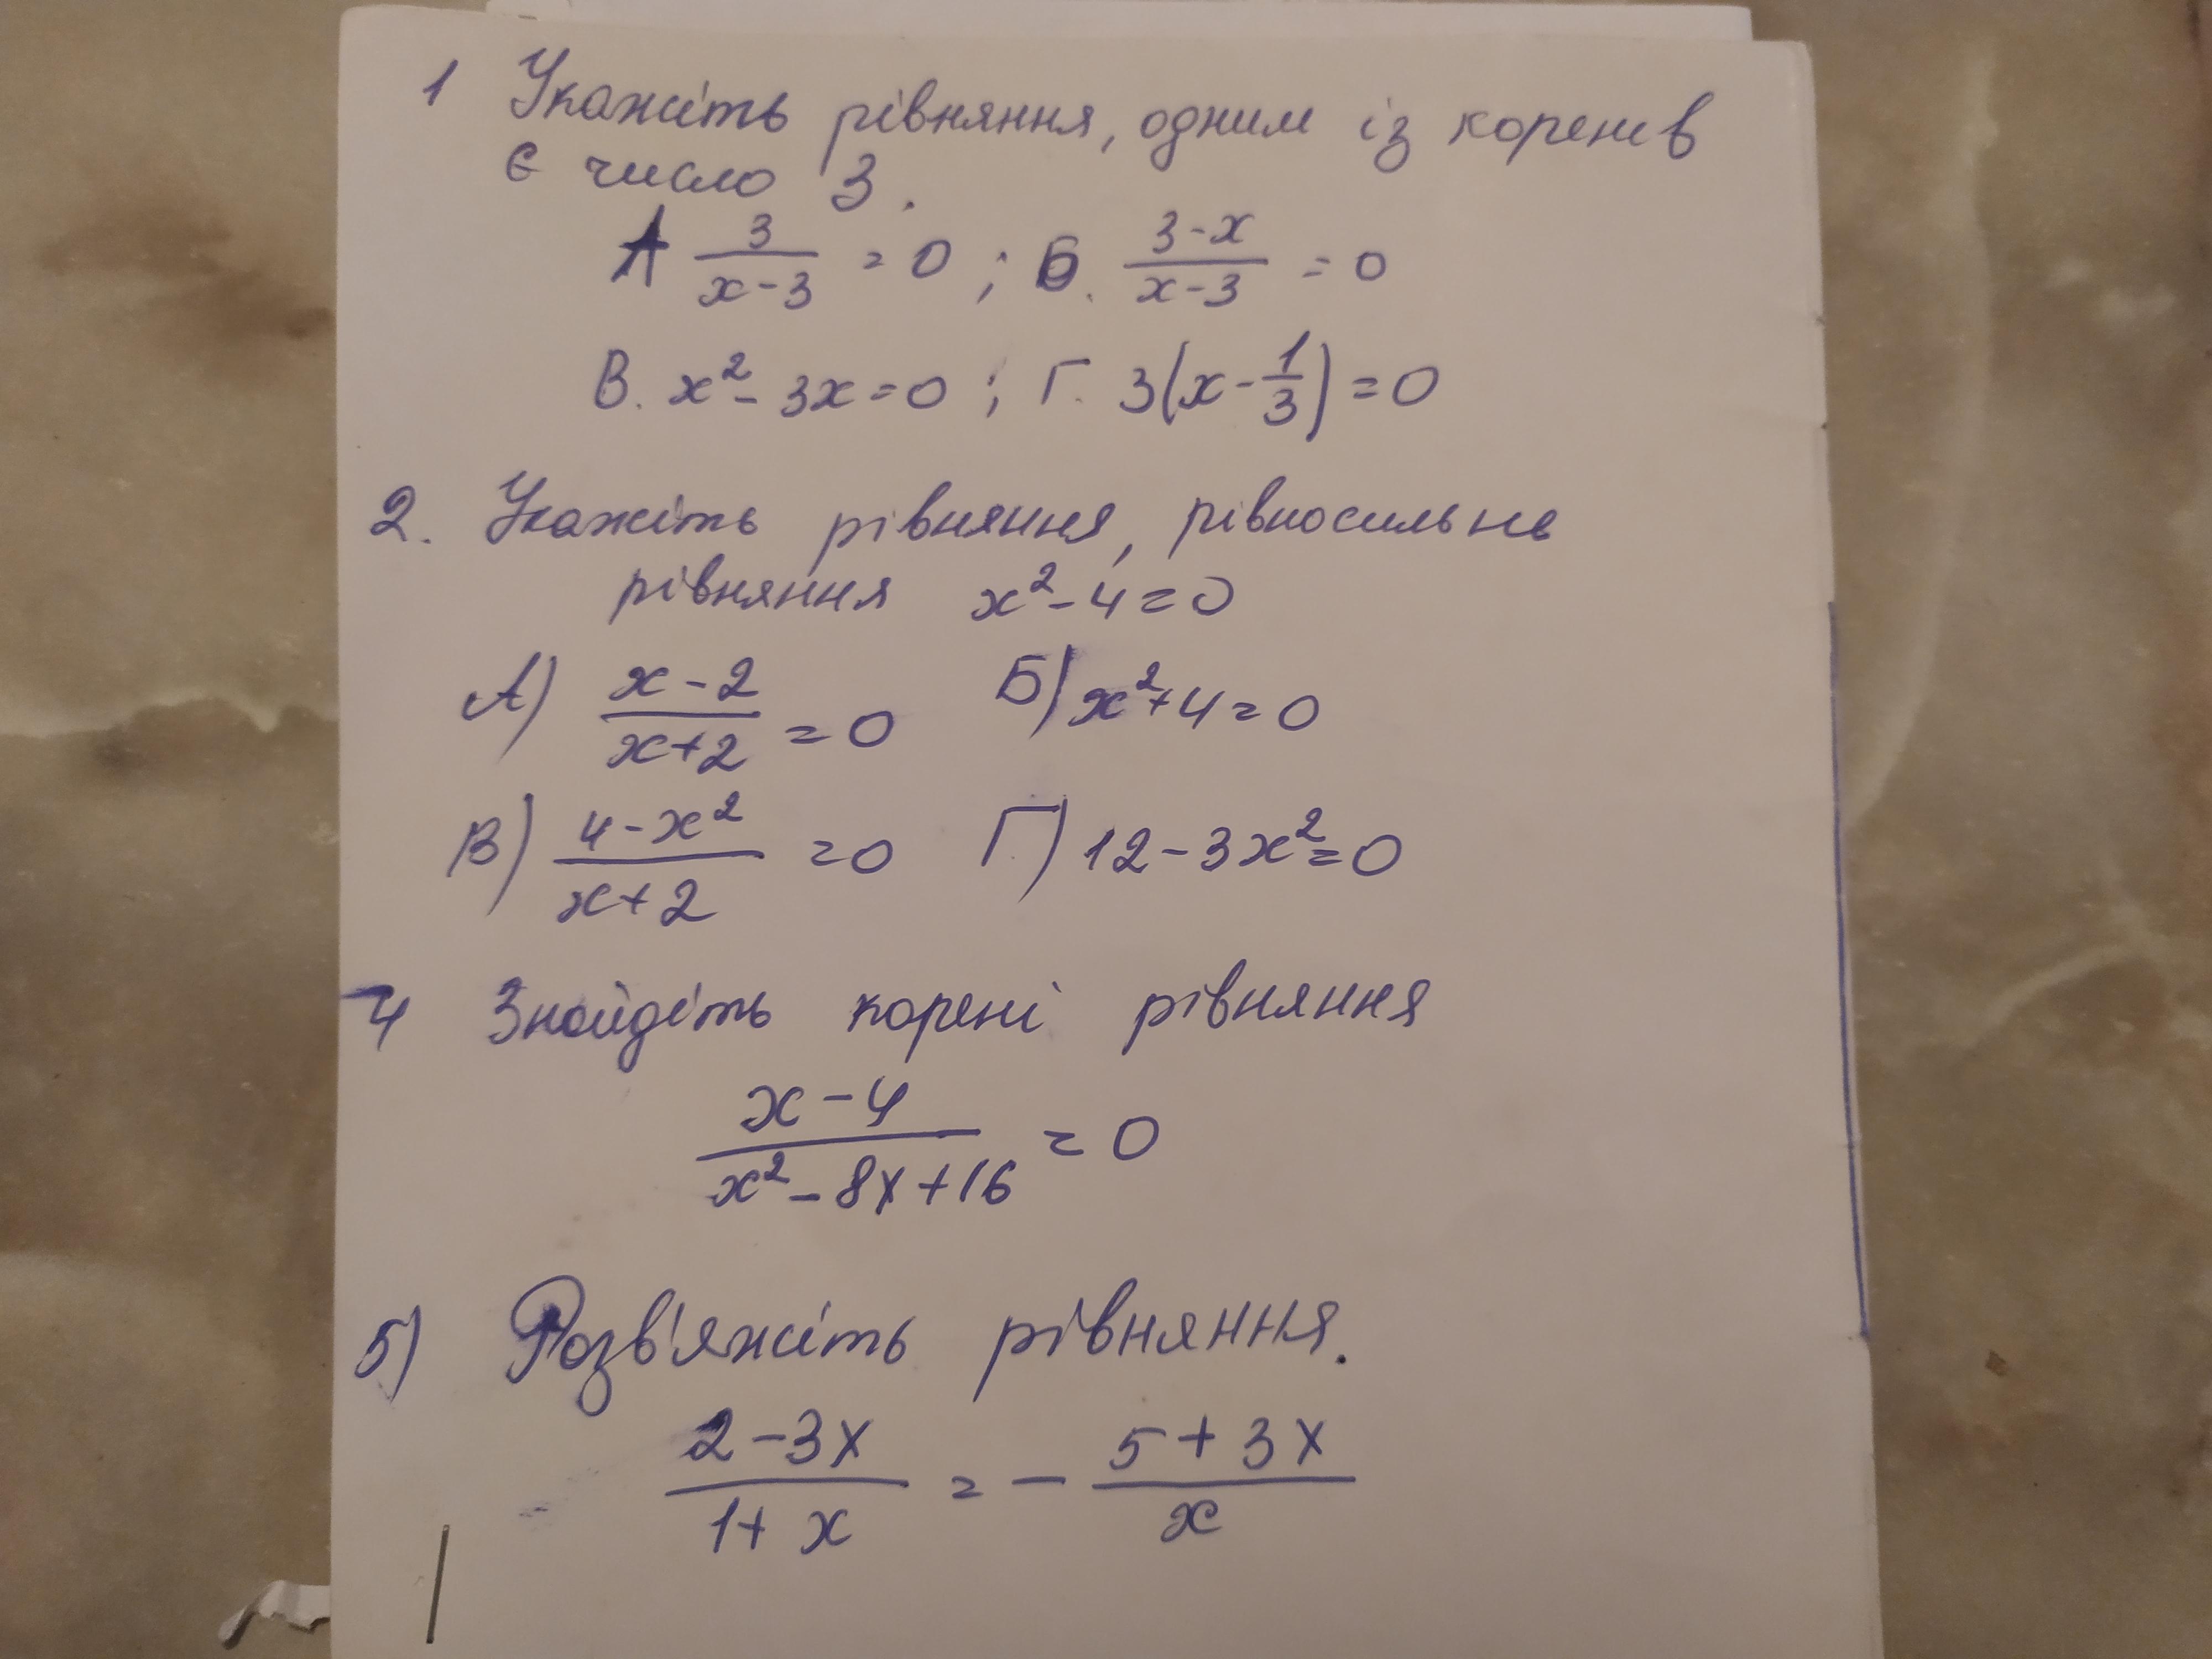 1 Укажіть рівняння, одним із коренів
є число 3.
А 3/(x-3) = 0 ; Б. (3-x)/(x-3) = 0
В. x² - 3x = 0 ; Г. 3(x - 1/3) = 0
2. Укажіть рівняння, рівносильне
рівняння x² - 4 = 0
А) (x-2)/(x+2) = 0 Б) x² + 4 = 0
В) (4-x²)/(x+2) = 0 Г) 12 - 3x² = 0
4 Знайдіть корені рівняння
(x-4)/(x² - 8x + 16) = 0
5) Розв'яжіть рівняння.
(2-3x)/(1+x) = - (5+3x)/x